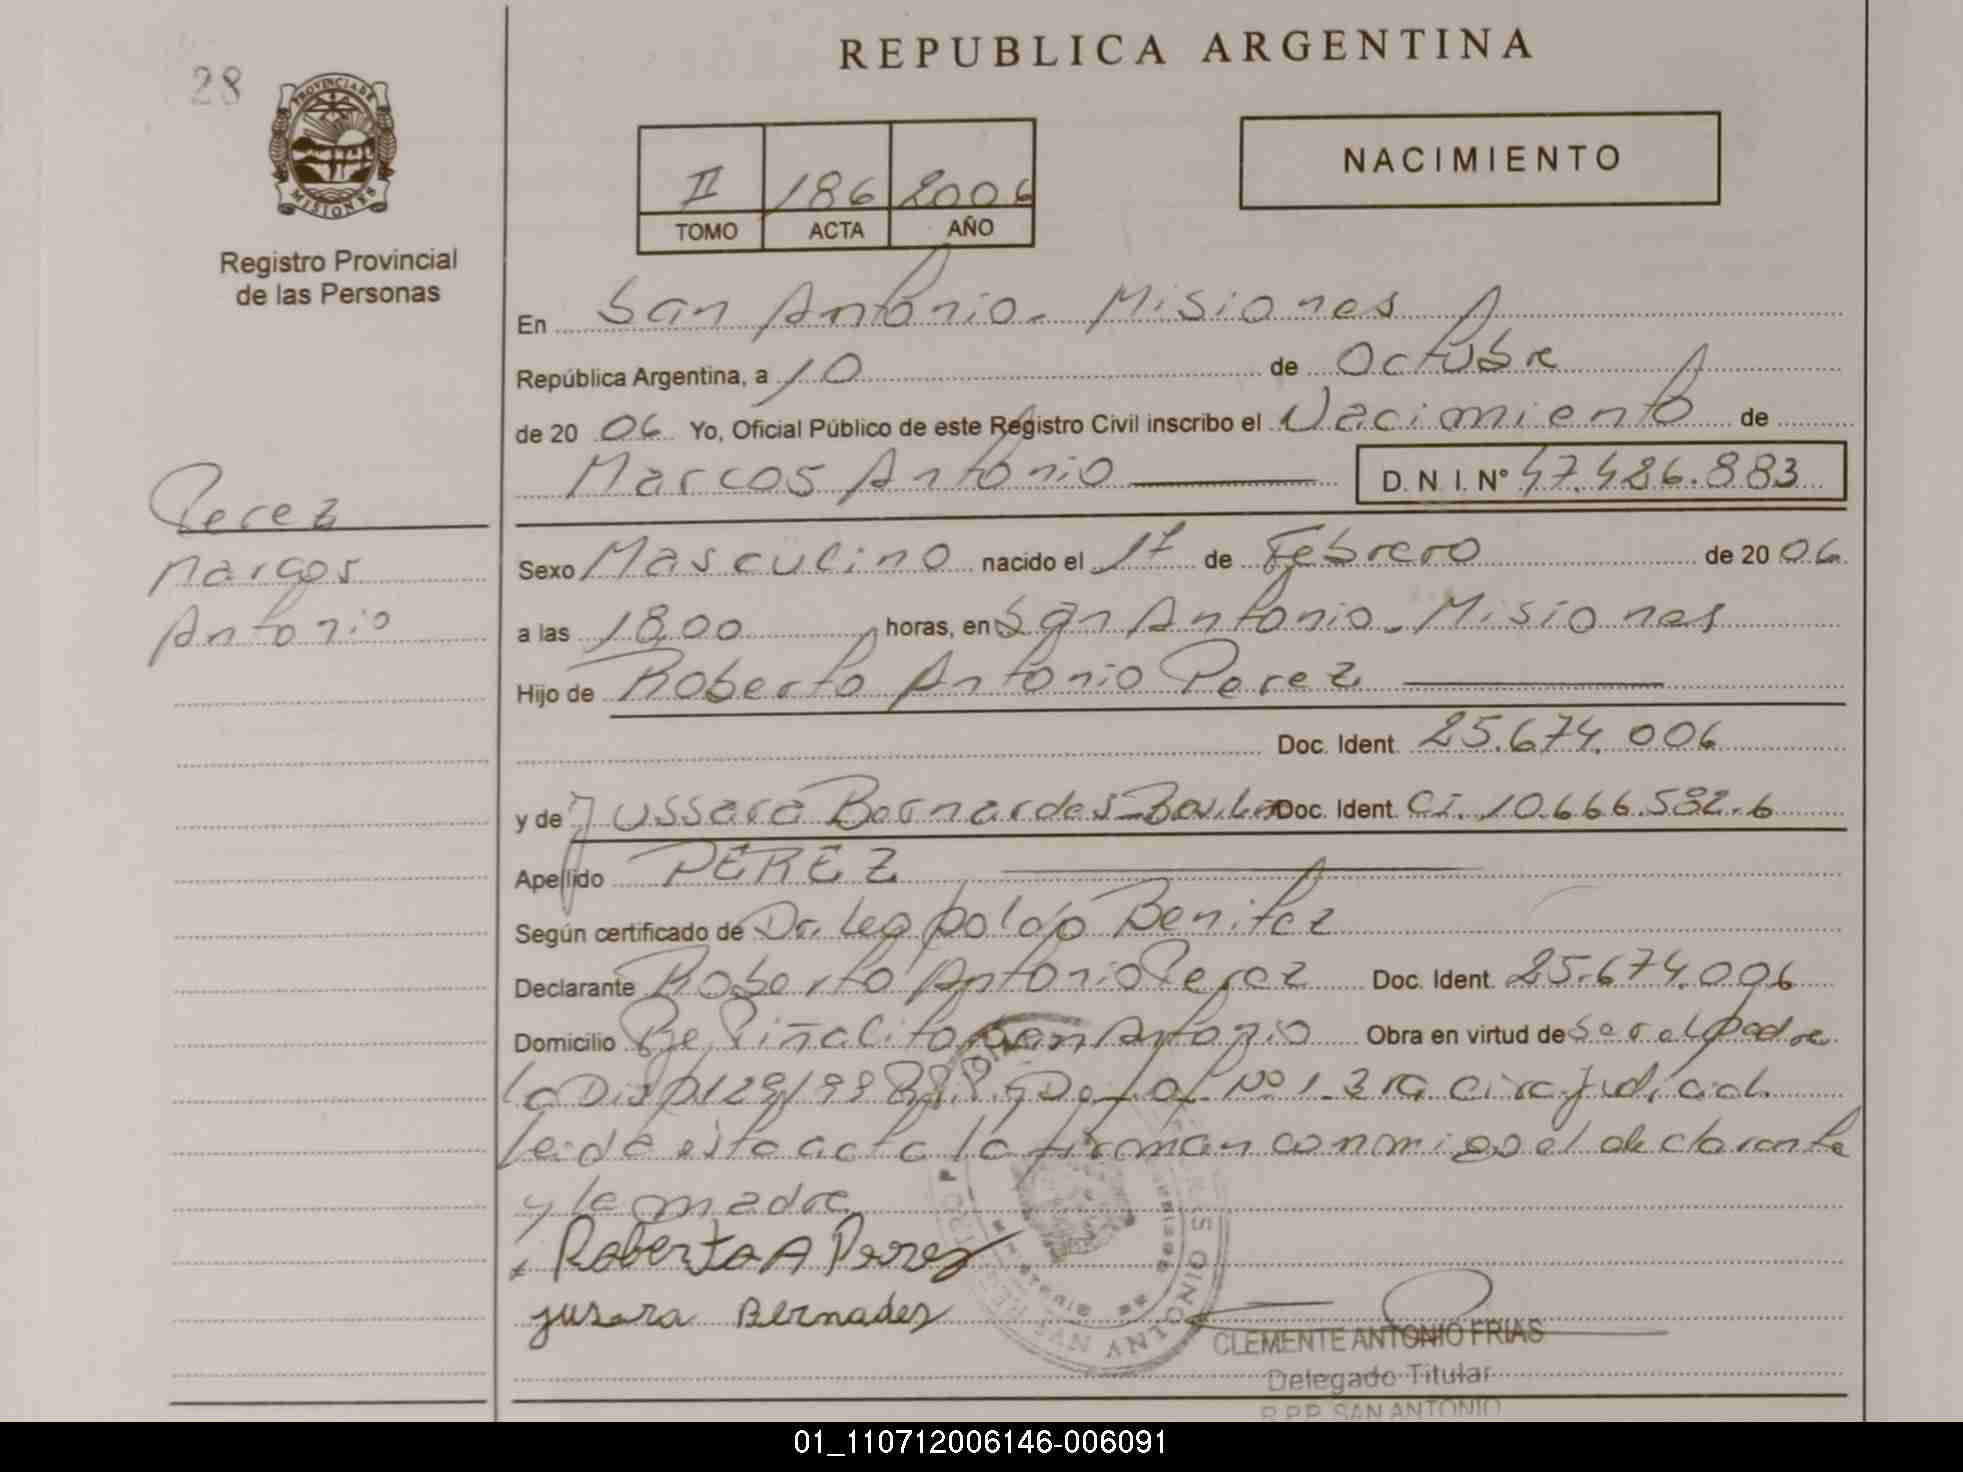 28
REPUBLICA ARGENTINA
PROVINCIA DE
MISIONES
Registro Provincial
de las Personas
II 186 2006
TOMO ACTA AÑO
NACIMIENTO
En San Antonio - Misiones
República Argentina, a 10 de Octubre
de 20 06 Yo, Oficial Público de este Registro Civil inscribo el Nacimiento de
Marcos Antonio D. N. I. Nº 47.486.883
Perez
Marcos
Antonio
Sexo Masculino nacido el 17 de Febrero de 20 06
a las 18,00 horas, en San Antonio - Misiones
Hijo de Roberto Antonio Perez
Doc. Ident. 25.674.006
y de Jussara Bernardes Doc. Ident. CI. 10.666.582-6
Apellido PEREZ
Según certificado de Dr. Leopoldo Benitez
Declarante Roberto Antonio Perez Doc. Ident. 25.674.006
Domicilio Piñalito San Antonio Obra en virtud de ser el padre
Nº 1 - 3ra circ. judicial.
Leida esta acta la firman conmigo el declarante
y la madre
Roberto A Perez
jusara Bernades
CLEMENTE ANTONIO FRIAS
Delegado Titular
R.P.P. SAN ANTONIO
01_110712006146-006091